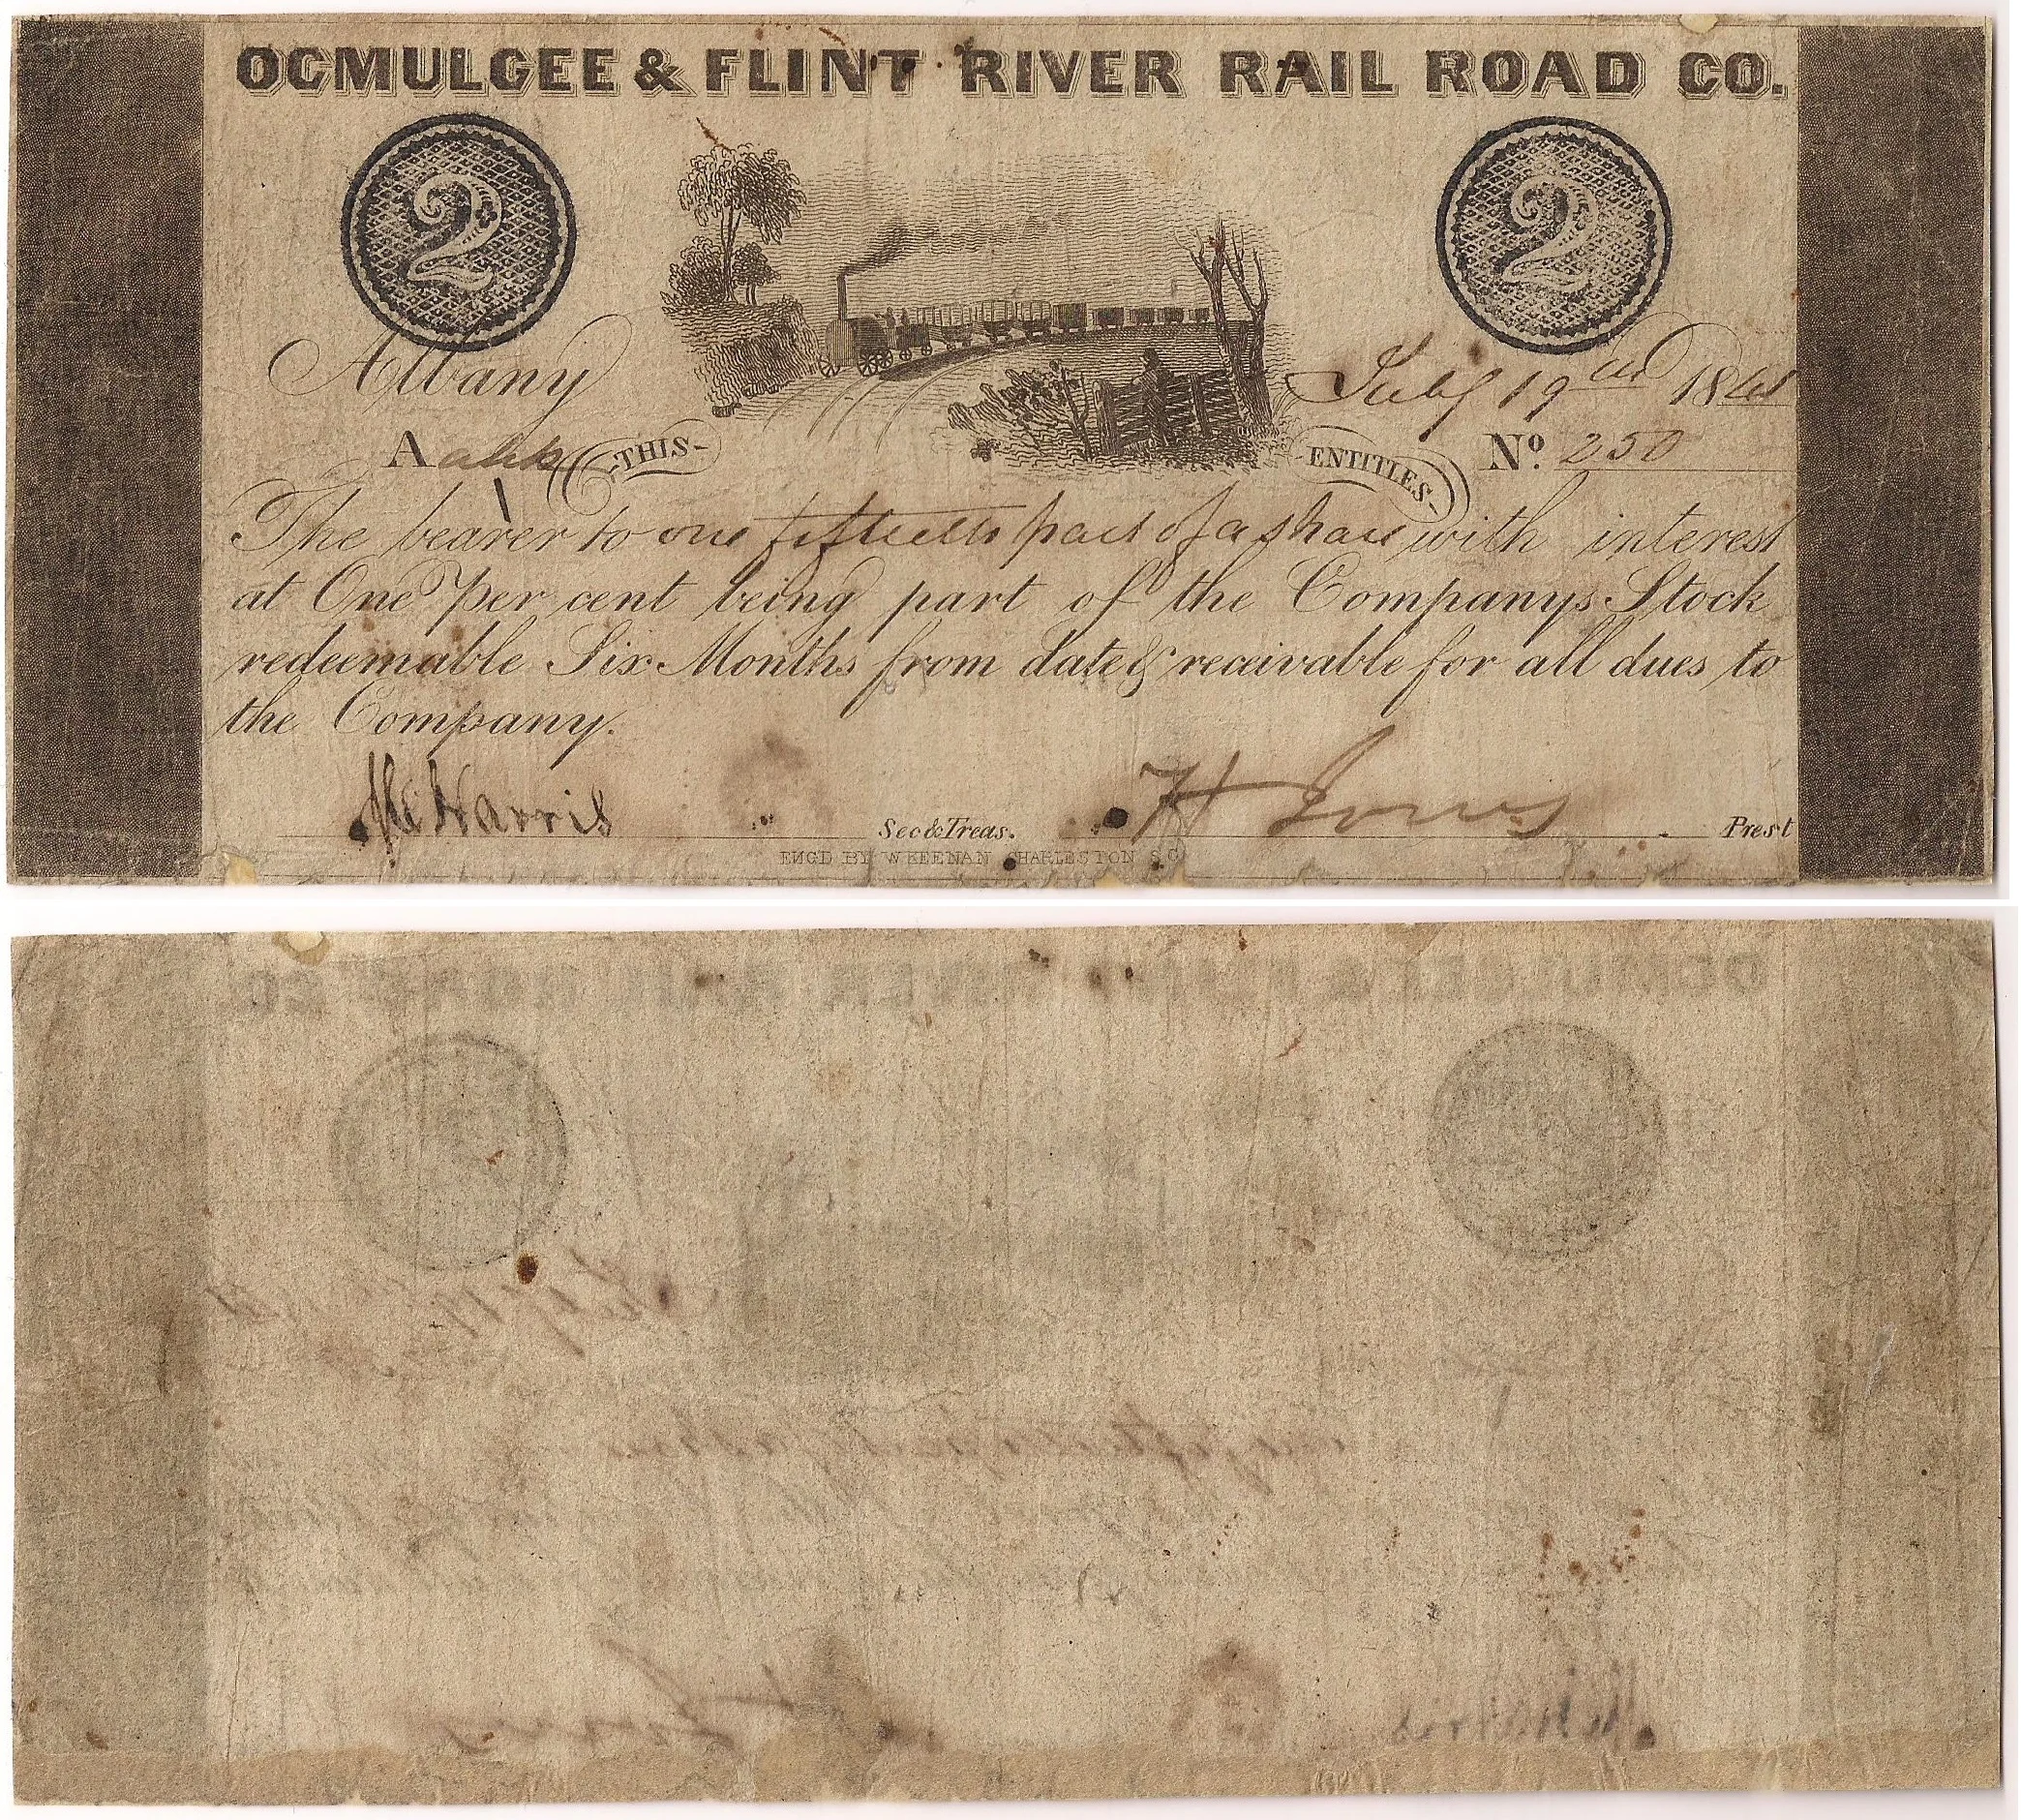 OCMULGEE & FLINT RIVER RAIL ROAD CO.
2 2
Albany July 19 1841
A THIS ENTITLES No. 250
The bearer to one fiftieth part of a share with interest
at One per cent being part of the Companys Stock
redeemable Six Months from date & receivable for all dues to
the Company.
Mc Harris Sec & Treas. H Jones Prest
ENGD BY W KEENAN CHARLESTON S.C.